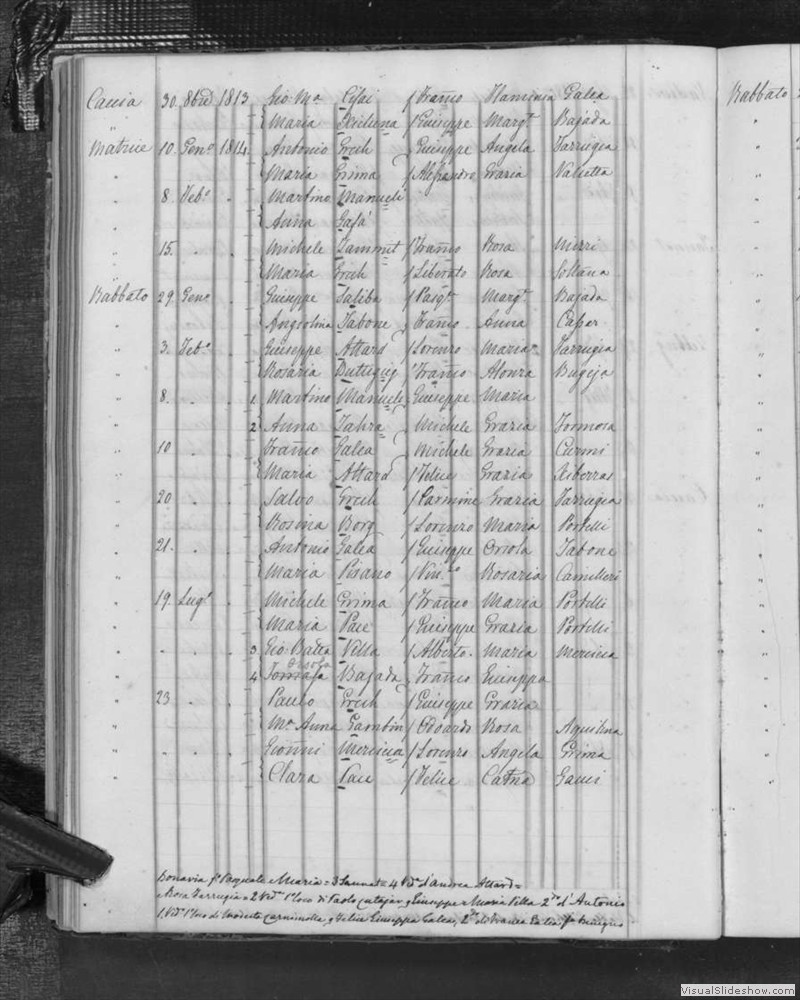 Caccia 30. 8bre 1813 Gio: Ma. Cesai f Franco Flaminia Galea
" Maria Xicluna f Giuseppe Margta. Bajada
Matrice 10. Geno. 1814. Antonio Grech f Giuseppe Angela Farrugia
" Maria Grima f Alejsandro Grazia Valletta
" 8. Febo. . Martino Manueli
" Anna Gafa'
" 15. . . Michele Zammit f Franco Rosa Mizzi
" Maria Grech f Liberato Rosa Soltana
Rabbato 29. Geno. . Giuseppe Saliba f Pasqe. Margta. Bajada
" Angiolina Tabone f Franco Anna Casser
" 3. Febo. . Giuseppe Attard f Lorenzo Maria Farrugia
" Rosaria Buttigieg f Franco Alonza Bugeja
" 8. . . 1. Martino Manueli f Giuseppe Maria
" 2 Anna Zahra f Michele Grazia Formosa
" 10 . . Franco Galea f Michele Grazia Curmi
" Maria Attard f Felice Grazia Xiberras
" 20 . . Salvo Grech f Carmine Grazia Farrugia
" Rosina Borg f Lorenzo Maria Portelli
" 21. . . Antonio Galea f Giuseppe Orsola Tabone
" Maria Pisano f Vinco. Rosaria Camilleri
" 19. Lugo. . Michele Grima f Franco Maria Portelli
" Maria Pace f Giuseppe Grazia Portelli
" . . . 3 Gio: Batta Villa f Alberto. Maria Mercieca
Orsola
" 4 Bajada f Franco Giuseppa
" 23 . . Paulo Grech f Giuseppe Grazia
" Ma. Anna Gambin f Odoardo Rosa Aquilina
" . . . Gionni Mercieca f Lorenzo Angela Grima
" Clara Pace f Felice Catna Gauci
Bonavia f. Pasquale e Maria = 3 Sannat = 4 Vda. d'Andrea Attard =
e Rosa Farrugia = 2 Vda. Po. loco di Paolo Cutajar, f Giuseppe e Maria Villa 2do. d'Antonio
1. Vdo. Po. loco di Modesta f Felice Giuseppa Galea, 2do. di
Rabbato
VisualSlideshow.com